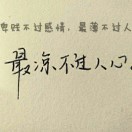 卑贱不过感情，最薄不过人
最凉不过人心。